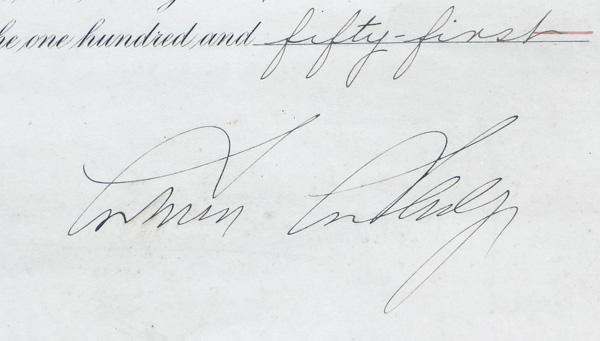 he one hundred and fifty-first
Calvin Coolidge